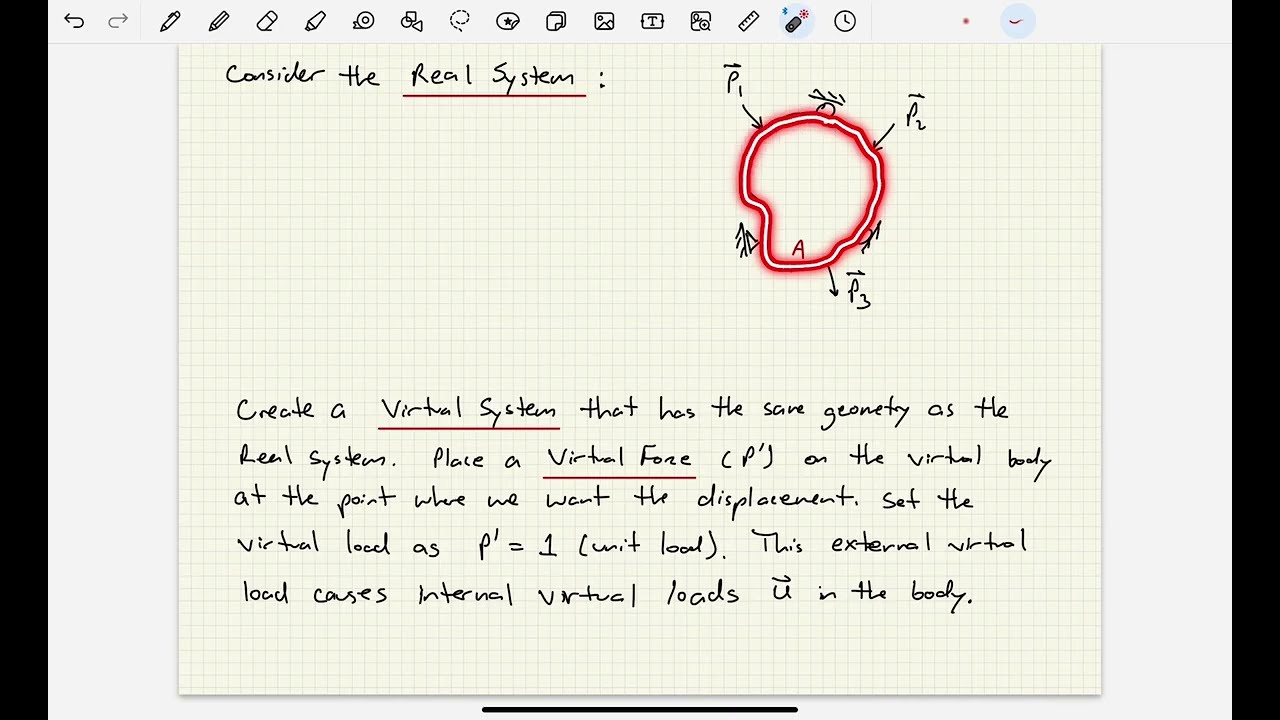 Consider the Real System :
P₁
P₂
A
P₃
Create a Virtual System that has the same geometry as the
Real System. Place a Virtual Force (P') on the virtual body
at the point where we want the displacement. Set the
virtual load as P' = 1 (unit load). This external virtual
load causes internal virtual loads u⃗ in the body.